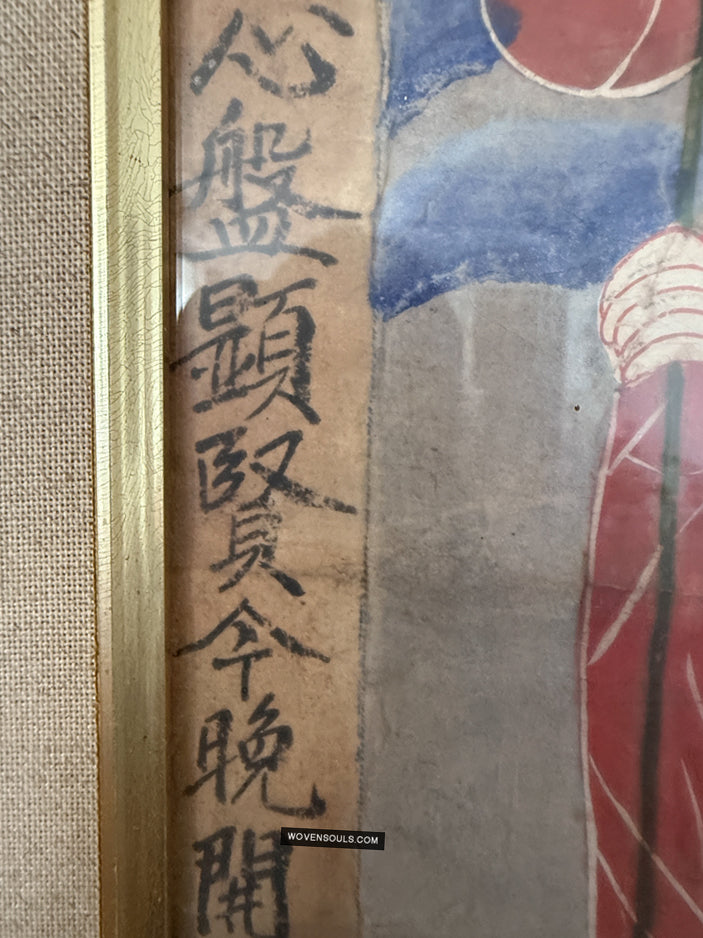 心盤顕賢今晚開
WOVENSOULS.COM